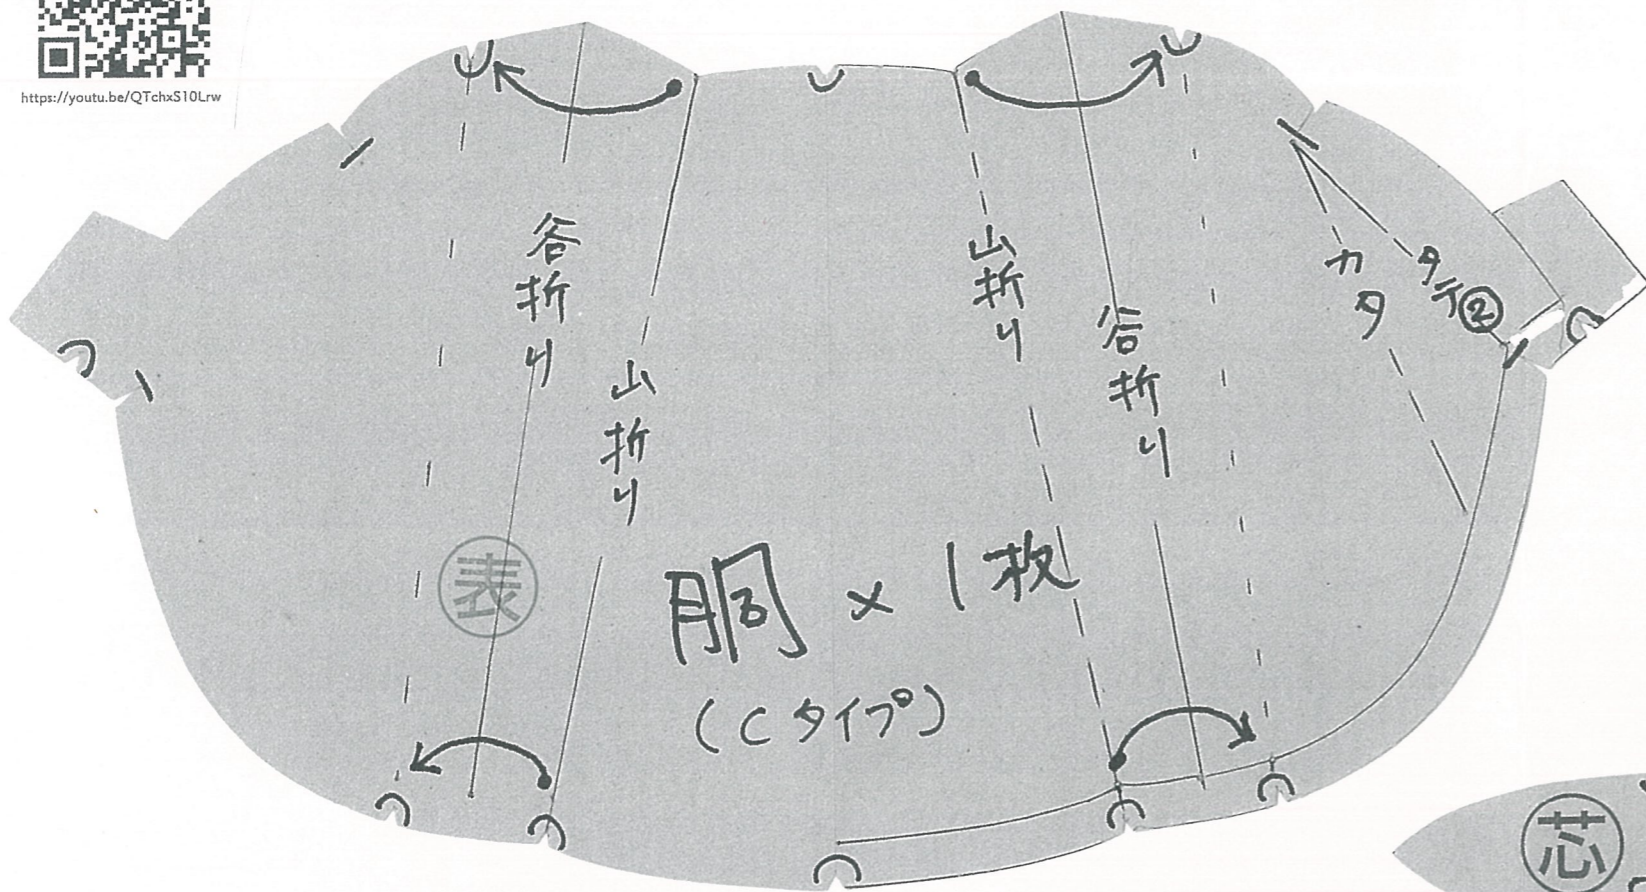 https://youtu.be/QTchxS10Lrw
谷折り
山折り
山折り
谷折り
カタ
タテ②
表
胴×1枚
(Cタイプ)
芯